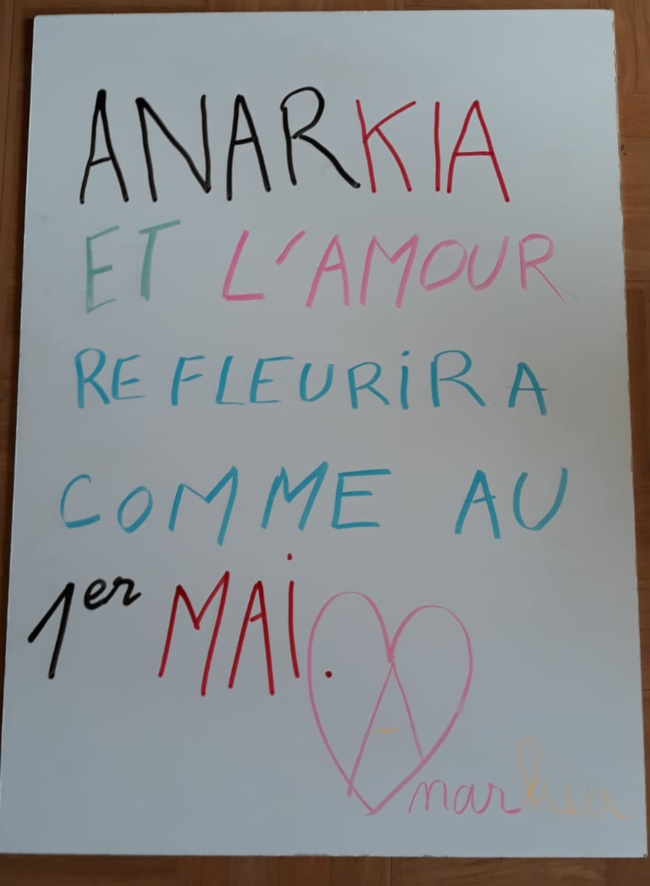 ANARKIA
ET L'AMOUR
REFLEURiRA
COMME AU
1er MAi.
Anarkia